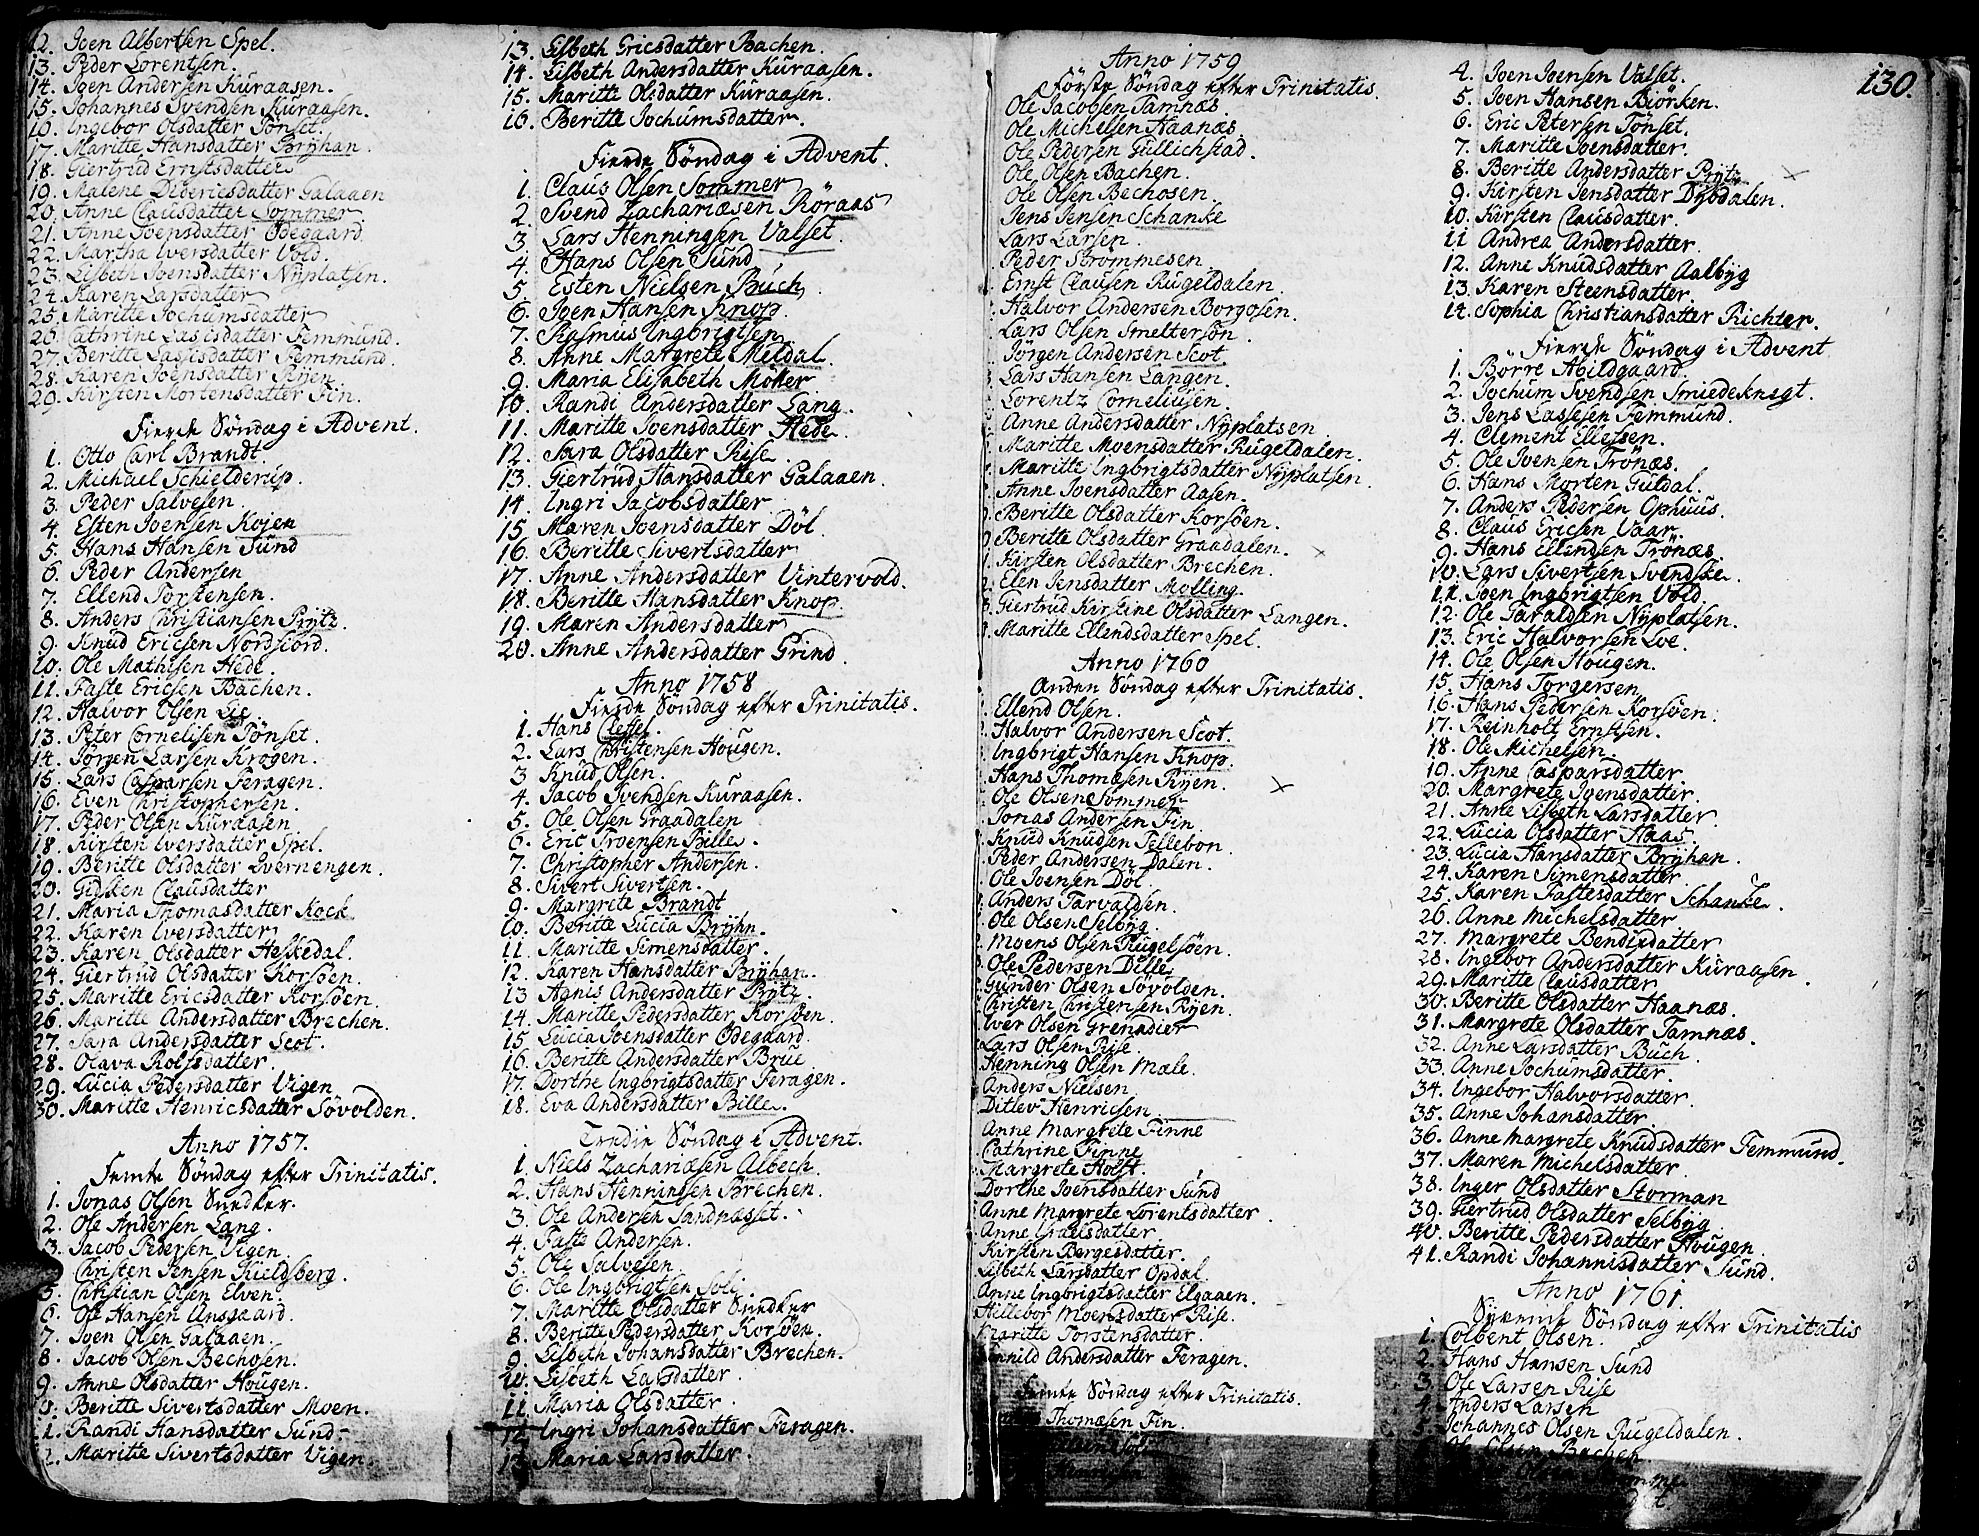 12. Joen Albertsen Spel.
13. Peder Lorentsen.
14. Joen Andersen Kuraasen.
15. Johannes Svendsen Kuraasen.
16. Ingebor Olsdatter Tönset.
17. Maritte Hansdatter Brÿhan.
18. Giertrud Ernstsdatter
19. Malene Didericsdatter Galaaen
20. Anne Clausdatter Sommer.
21. Anne Joensdatter Ödegaard.
22. Martha Iversdatter Vold.
23. Lisbeth Joensdatter Nÿplatsen.
24. Karen Larsdatter
25. Maritte Jochumsdatter
26. Cathrine Lassisdatter Femmund.
27. Beritte Lassisdatter Femmund.
28. Karen Joensdatter Rÿen.
29. Kirsten Mortensdatter Fin.
Fierde Söndag i Advent.
1. Otto Carl Brandt.
2. Michael Schielderup.
3. Peder Salvesen
4. Esten Joensen Kojen
5. Hans Hansen Sund
6. Peder Andersen
7. Ellend Torstensen.
8. Anders Christiansen Prÿtz.
9. Knud Ericsen Nordfiord.
10. Ole Mathisen Hede.
11. Faste Ericsen Bachen.
12. Halvor Olsen Lie
13. Peter Cornelisen Tönset.
14. Jörgen Larsen Krogen.
15. Lars Casparsen Feragen.
16. Even Christophersen.
17. Peder Olsen Kuraasen
18. Kirsten Iversdatter Spel.
19. Beritte Olsdatter Ivernengen.
20. Gidsken Clausdatter
21. Maria Thomasdatter Kock
22. Karen Iversdatter
23. Karen Olsdatter Heskedal.
24. Giertrud Olsdatter Korsöen.
25. Maritte Ericsdatter Korsöen.
26. Maritte Andersdatter Brechen.
27. Sara Andersdatter Scot.
28. Olava Rolfsdatter.
29. Lucia Pedersdatter Vigen
30. Maritte Henricsdatter Sövolden.
Anno 1757.
Femte Söndag efter Trinitatis.
1. Jonas Olsen Snedker.
2. Ole Andersen Lang.
3. Jacob Pedersen Vigen.
Christen Jensen Kieldsberg.
5. Christian Olsen Elven.
6. Ole Hansen Aasgaard.
7. Joen Olsen Galaaen.
8. Jacob Olsen Bechosen.
9. Anne Olsdatter Hougen.
Beritte Sivertsdatter Moen.
Randi Hansdatter Sund
2. Maritte Sivertsdatter Vigen.
13. Lisbeth Ericsdatter Bachen.
14. Lisbeth Andersdatter Kuraasen.
15. Maritte Olsdatter Kuraasen.
16. Beritte Jochumsdatter.
Fierde Söndag i Advent.
1. Claus Olsen Sommer
2. Svend Zachariæsen Röraas
3. Lars Henningsen Valset.
4. Hans Olsen Sund
5. Esten Nielsen Buch
6. Joen Hansen Knop.
7. Rasmus Ingbrigtsen
8. Anne Margrete Meldal.
9. Maria Elisabeth Möller
10. Randi Andersdatter Lang.
11. Maritte Joensdatter Hede.
12. Sara Olsdatter Rise
13. Giertrud Hansdatter Galaaen.
14. Ingri Jacobsdatter
15. Maren Joensdatter Döl.
16. Beritte Sivertsdatter
17. Anne Andersdatter Vintervold.
18. Beritte Hansdatter Knop.
19. Maren Andersdatter
20. Anne Andersdatter Grind.
Anno 1758
Fierde Söndag efter Trinitatis.
1. Hans Clessel.
2. Lars Christensen Hougen.
3 Knud Olsen.
4. Jacob Svendsen Kuraasen.
5. Ole Olsen Graadalen
6. Eric Troensen Bille.
7. Christopher Andersen.
8. Sivert Sivertsen.
9. Margrete Brandt
10. Beritte Lucia Brÿhn.
11. Maritte Simensdatter
12. Karen Hansdatter Brÿhan.
13 Agnis Andersdatter Prÿtz
14. Maritte Pedersdatter Korsöen.
15. Lucia Joensdatter Ödegaard.
16. Beritte Andersdatter Brue
17. Dorthe Ingbrigtsdatter Feragen.
18. Eva Andersdatter Bille.
Tredie Söndag i Advent.
1. Niels Zachariæsen Albech.
2. Hans Henningsen Brechen.
3. Ole Andersen Sandnæsset.
4. Faste Andersen.
5. Ole Salvesen.
6. Ole Ingbrigtsen Soli.
7. Maritte Olsdatter Snedker
8. Beritte Pedersdatter Korsöen.
9. Lisbeth Johansdatter Brechen.
10. Lisbeth Larsdatter.
11. Maria Olsdatter.
12. Ingri Johansdatter Feragen.
13. Maria Larsdatter.
Anno 1759
Förste Söndag efter Trinitatis.
Ole Jacobsen Tamnæs
Ole Michelsen Haanæs.
Ole Pedersen Gullichstad.
Ole Olsen Bachen.
Ole Olsen Bechosen.
Jens Jensen Schanke
Lars Larsen.
Peder Strommesen.
Ernst Clausen Rugeldalen.
Halvor Andersen Borgosen.
Lars Olsen Smeltersön.
Jörgen Andersen Scot
Lars Hansen Langen.
Lorentz Corneliusen.
Anne Andersdatter Nÿplatsen
Maritte Moensdatter Rugeldalen.
Maritte Ingbrigtsdatter Nÿplatsen.
Anne Joensdatter Aasen.
Beritte Olsdatter Korsöen.
Beritte Olsdatter Graadalen.
Kirsten Olsdatter Brechen.
Elen Jensdatter Molling.
Giertrud Kirstine Olsdatter Langen.
Maritte Ellendsdatter Spel.
Anno 1760
Anden Söndag efter Trinitatis.
Ellend Olsen.
Halvor Andersen Scot.
Ingbrigt Hansen Knop.
Hans Thomæsen Rÿen.
Ole Olsen Sommer
Jonas Andersen Fin
Knud Knudsen Tellebon.
Peder Andersen Dalen.
Ole Joensen Döl.
Anders Tarvaldsen.
Ole Olsen Selbÿg.
Moens Olsen Rugelsöen.
Ole Pedersen Dille
Gunder Olsen Sövolden.
Christen Christensen Rÿen.
Iver Olsen Grenadier
Lars Olsen Rise
Henning Olsen Mæle.
Anders Nielsen
Ditlev Henricsen.
Anne Margrete Finne
Cathrine Finne
Margrete Holst.
Dorthe Joensdatter Sund
Anne Margrete Lorentsdatter.
Anne Graelsdatter.
Kirsten Børgesdatter.
Lisbeth Larsdatter Opdal.
Anne Ingbrigtsdatter Elgaaen.
Hillebor Moensdatter Rise.
Maritte Torstensdatter.
Gunnild Andersdatter Feragen.
Femte Söndag efter Trinitatis.
Thomæsen Fin.
130.
4. Joen Joensen Valset.
5. Joen Hansen Biörken.
6. Eric Petersen Tönset.
7. Maritte Joensdatter.
8. Beritte Andersdatter Prÿtz
9. Kirsten Jensdatter Dÿbdalen.
10. Kirsten Clausdatter.
11 Andrea Andersdatter.
12. Anne Knudsdatter Aalbÿg
13. Karen Steensdatter.
14. Sophia Christiansdatter Richter.
Fierde Söndag i Advent
1. Börre Abildgaard.
2. Jochum Svendsen Smiedeknegt.
3. Jens Lassesen Femmund.
4. Clement Ellefsen.
5. Ole Joensen Trönæs.
6. Hans Morten Guldal.
7. Anders Pedersen Ophuus.
8. Claus Ericsen Vaar.
9. Hans Ellendsen Trönæs.
10. Lars Sivertsen Svendske.
11. Joen Ingbrigtsen Vold.
12. Ole Taraldsen Nÿplatsen.
13. Eric Halvorsen Loe.
14. Ole Olsen Hougen.
15. Hans Torgersen
16. Hans Pedersen Korsöen.
17. Reinholt Ernstsen.
18. Ole Michelsen.
19. Anne Casparsdatter.
20. Margrete Joensdatter.
21. Anne Lisbeth Larsdatter.
22. Lucia Olsdatter Haas.
23. Lucia Hansdatter Brÿhan.
24. Karen Simensdatter.
25. Karen Fastesdatter Schanke.
26. Anne Michelsdatter
27. Margrete Bendixdatter
28. Ingebor Andersdatter Kuraasen.
29. Maritte Clausdatter
30. Beritte Olsdatter Haanæs.
31. Margrete Olsdatter Tamnæs.
32. Anne Larsdatter Buch.
33. Anne Jochumsdatter.
34. Ingebor Halvorsdatter.
35. Anne Johansdatter.
36. Anne Margrete Knudsdatter Femmund.
37. Maren Michelsdatter
38. Inger Olsdatter Storman
39. Giertrud Olsdatter Selbÿg
40. Beritte Pedersdatter Hougen
41. Randi Johannisdatter Sund.
Anno 1761.
Sÿvende Söndag efter Trinitatis
1. Colbent Olsen.
2. Hans Hansen Sund
3. Ole Larsen Rise
4. Anders Larsen
5. Johannes Olsen Rugeldalen.
Olsen Bachen